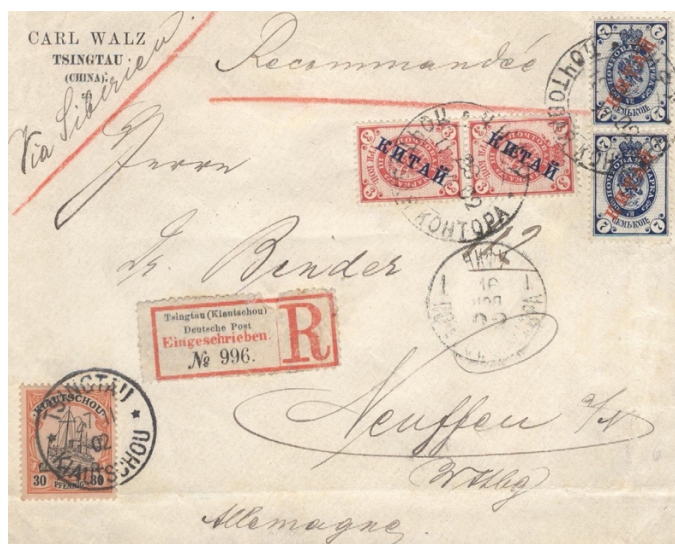 CARL WALZ
TSINGTAU
(CHINA).
Via Siberien
Recommandée
КИТАЙ
КИТАЙ
3
3
3
3
КОНТОРА
7
7
СЕМЬ КОП.
7
7
СЕМЬ КОП.
Herrn
Dr. Binder
Tsingtau (Kiautschou)
Deutsche Post
Eingeschrieben.
№ 996.
R
16
TSINGTAU
KIAUTSCHOU
02
KIAUTSCHOU
30 PFENNIG 30
Neuffen
Wttbg
Allemagne